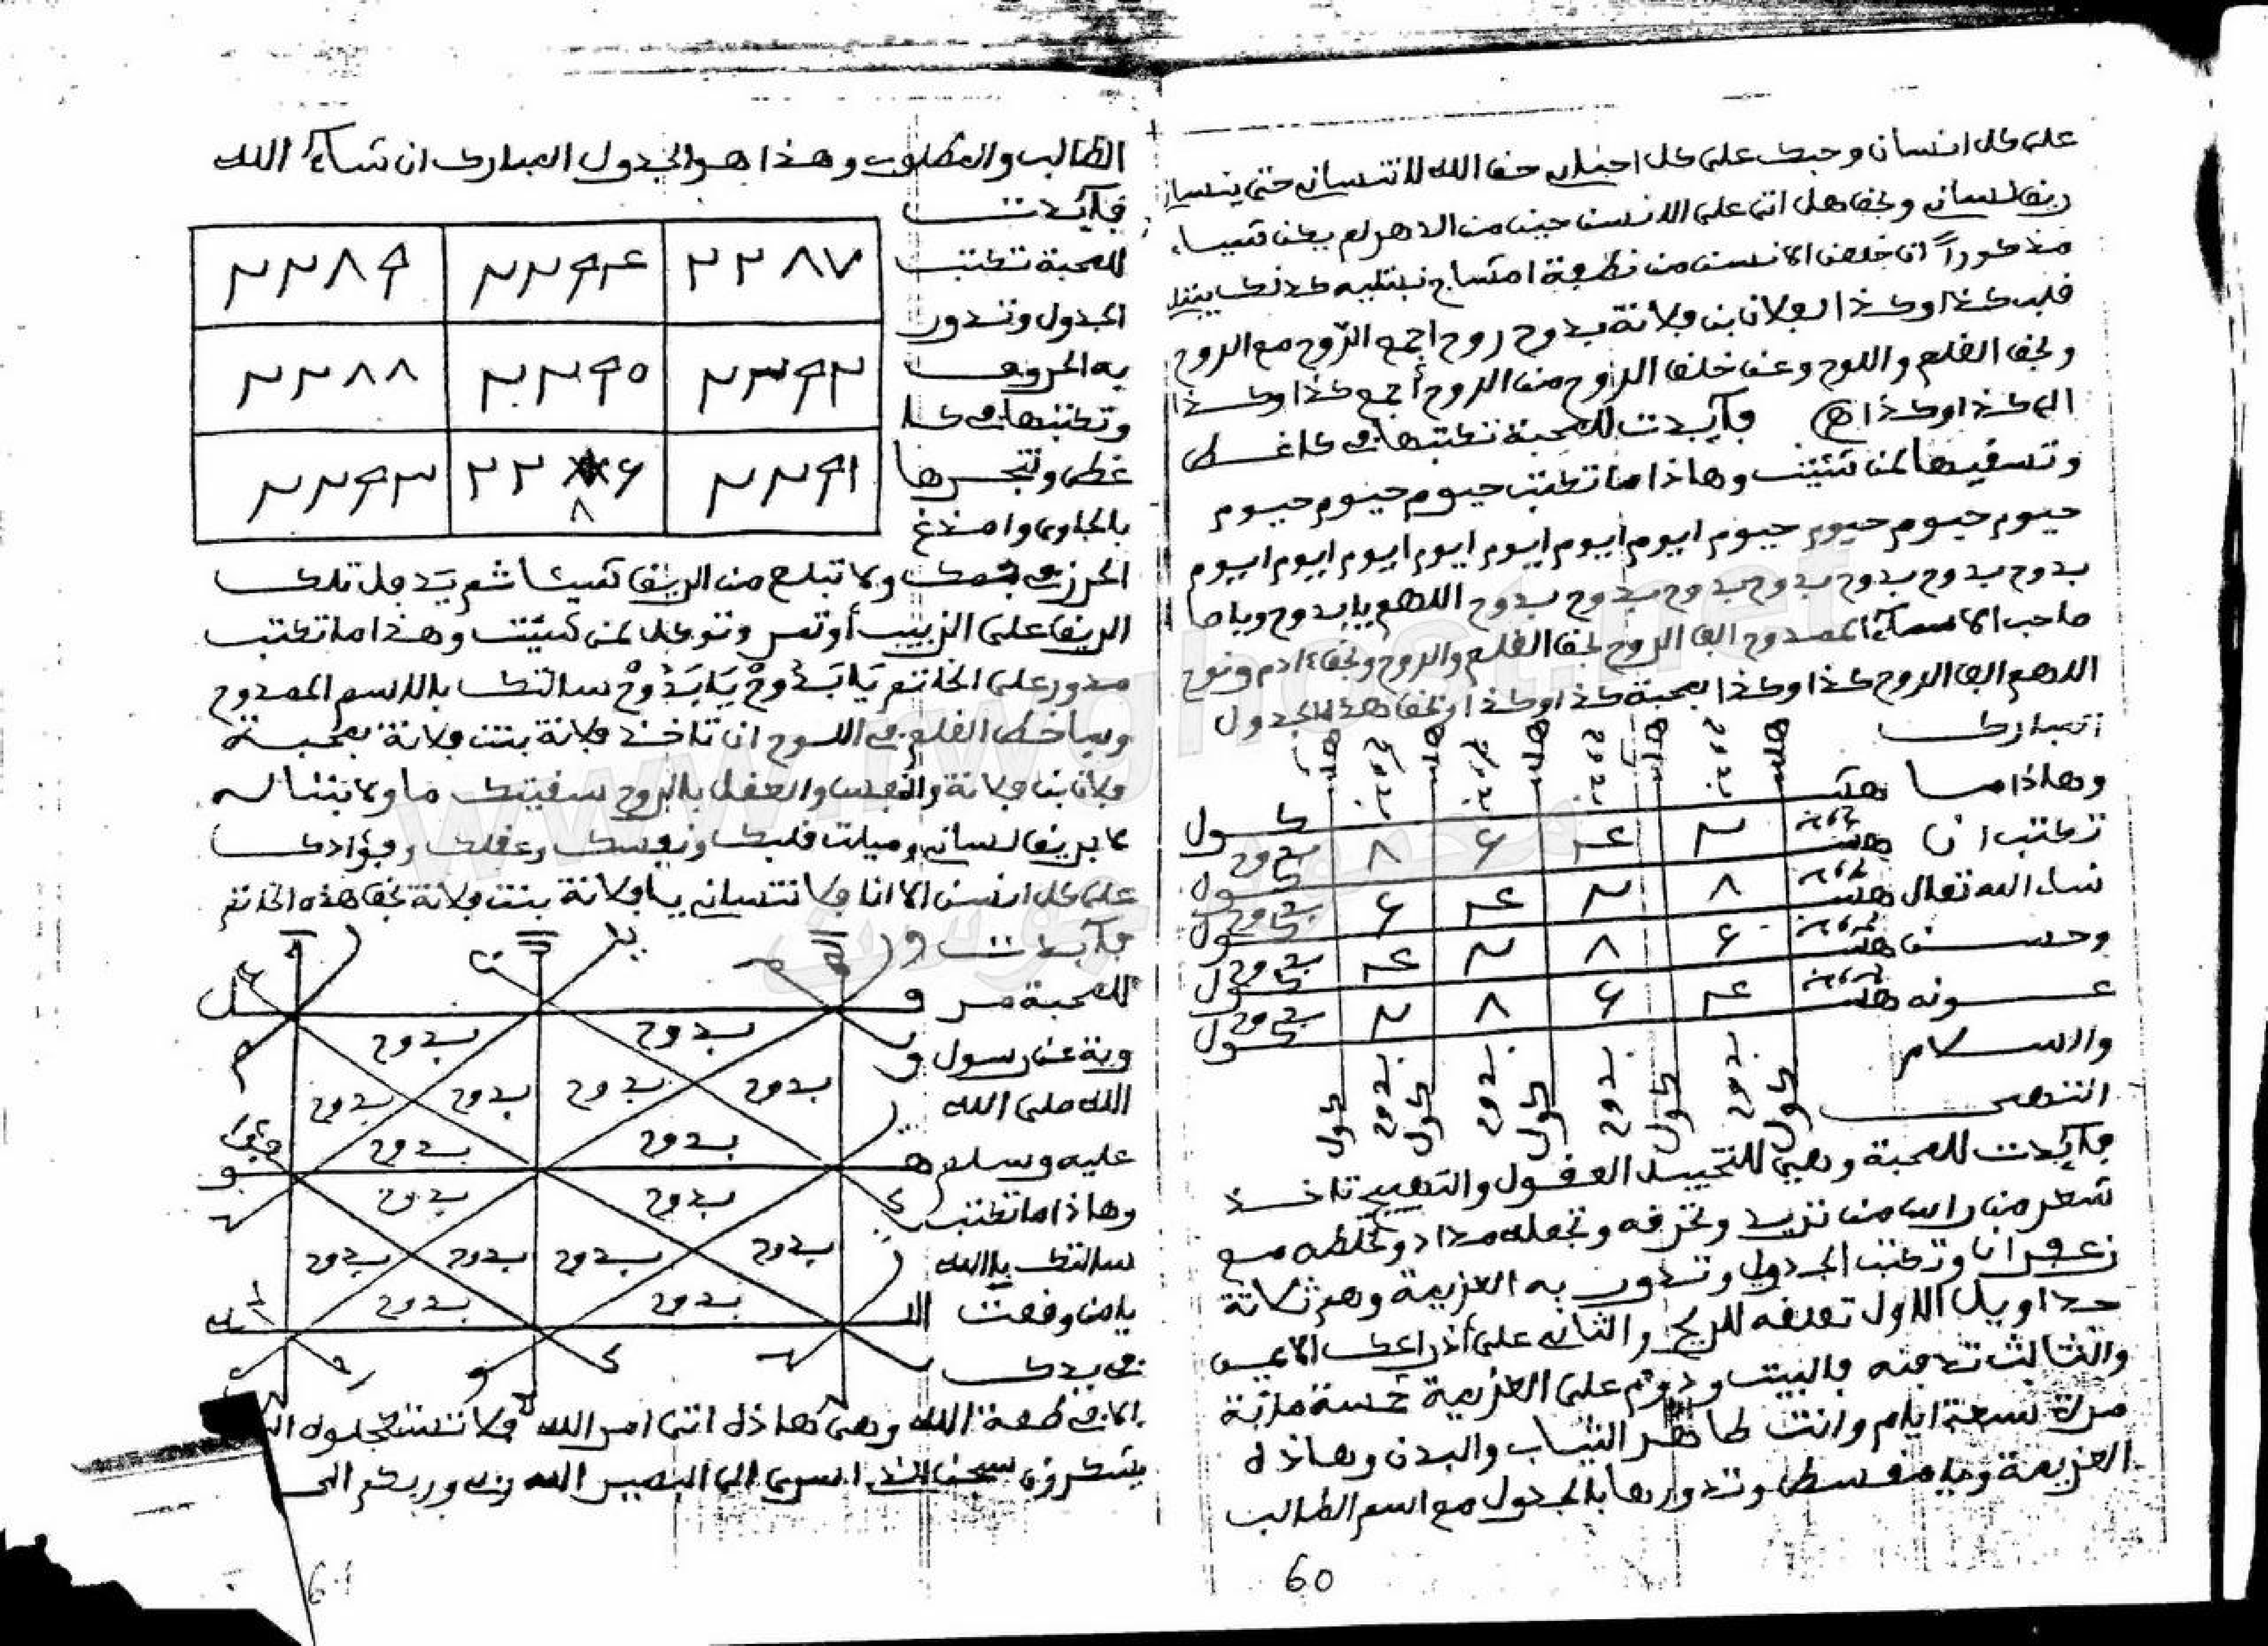 على كل انسان وحبك على كل احبابه حق الله لا تنساني حتى ينسا
ريق لسانه وبحق هل اتى على الانسن حين من الدهر لم يكن شيءا
مذكوراً ان خلقن الانسن من نطفة امشاج نبتليه كذلك يبتلا
قلب كذا وكذا ابفلان بن فلانة بدوح روح اجمع الروح مع الروح
وبحق القلم واللوح وعن خلق الروح من الروح أجمع كذا وكذا
الى كذا وكذا فآيدت للمحبة تكتبها في كاغط
وتسقيها لمن شئت وهاذا ما تكتب حيوم حيوم حيوم
حيوم حيوم حيوم حيوم ايوم ايوم ايوم ايوم ايوم ايوم ايوم
بدوح بدوح بدوح بدوح بدوح بدوح بدوح اللهم يابدوح ويا صا
صاحب الممدوح الف الروح بحق القلم والروح وبحق ءادم ونوح
اللهم الف الروح كذا وكذا بمحبة كذا وكذا وبحق هذا الجدول
المبارك
وهاذا ما
تكتب ان
شاء الله تعالى
وحسن
عونه
والسلام
انتهى
٢ ٤ ٦ ٨
٨ ٢ ٤ ٦
٦ ٨ ٢ ٤
٤ ٦ ٨ ٢
بدوح بدوح بدوح بدوح
كول كول كول كول كول
فآيدت للمحبة وهي للتحييل العقول والتهييج تاخذ
شعر من راس من تريد وتحرقه وتجعله مداد وتخلطه مع
زعفران وتكتب الجدول وتدور به العزيمة وهم ثلاثة
جداويل الاول تعلقه للريح والثاني على اذراعك الايمن
والثالث تدفنه فالبيت ودوم على العزيمة خمسة مائة
مرة سبعة ايام وانت طاهر الثياب والبدن وهاذه
العزيمة وتدورها بالجدول مع اسم الطالب
60
الطالب والمطلوب وهذا هو الجدول المبارك ان شآء الله
فآيدت
للمحبة تكتب
الجدول وتدور
به الحروف
وتكتبها في كا
غط وتبخرها
بالجاوى وامضغ
٢٢٨٧ ٢٢٩٤ ٢٢٨٩
٢٢٩٢ ٢٢٩٥ ٢٢٨٨
٢٢٩١ ٢٢٨٦ ٢٢٩٣
الحرز في فمك ولا تبلع من الريق شيئا ثم يَدفل تلك
الريق على الزبيب أو تمر وتوكل لمن شيئت وهذا ما تكتب
مدور على الخاتم يَا بَدُوحْ يَا بَدُوحْ سالتك بالاسم الممدوح
وبما خط القلم في اللوح ان تاخذ فلانة بنت فلانة بمحبة
فلان بن فلانة والنفس والعقل بالروح سقيتك ما ولا بتنا له
لا بريق لساني وميلت قلبك ونفسك وعقلك وفؤادك
على كل انسن الا انا فلا تنساني يا فلانة بنت فلانة بحق هذه الخاتم
فآيدت
للمحبة مر
وية عن رسول
الله صلى الله
عليه وسلم
وهاذا ما تكتب
سالتك يا الله
يا من وقفت
في يدك
بدوح بدوح
بدوح بدوح بدوح بدوح
بدوح بدوح
بدوح بدوح
بدوح بدوح بدوح بدوح
بدوح بدوح
الا في طعة الله وهي هاذه اتى امر الله فلا تستعجلوه
يشكرون سبحن الذ اسرى الى البصير الله وربكم
61